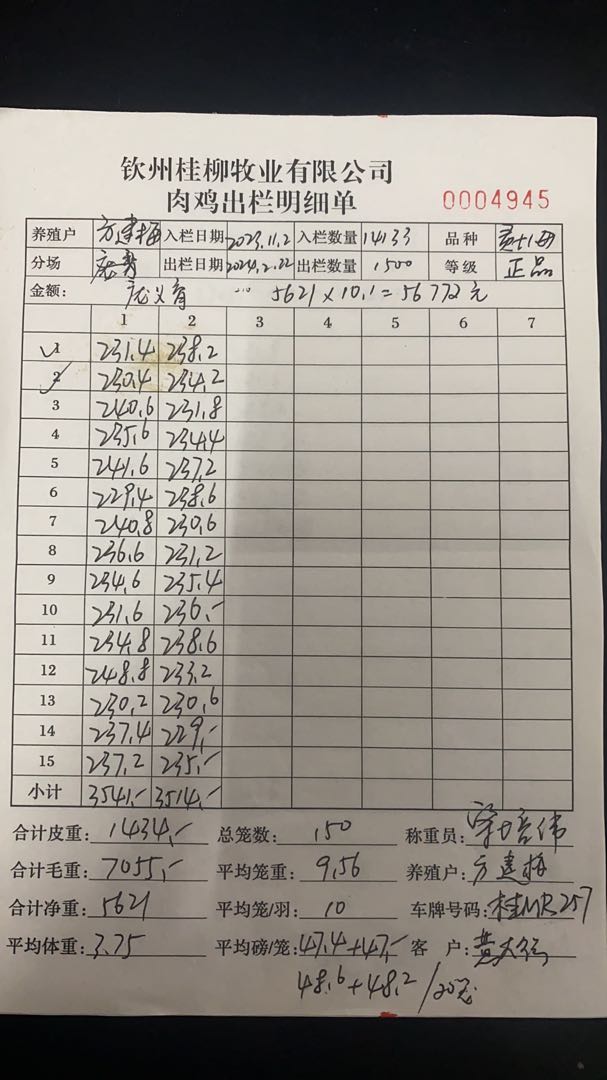 钦州桂柳牧业有限公司
肉鸡出栏明细单 0004945
养殖户 方建梅 入栏日期 2023.11.2 入栏数量 14133 品种
分场 出栏日期 2024.2.22 出栏数量 1500 等级 正品
金额: 5621×10.1=56772元
1 2 3 4 5 6 7
1 231.4 238.2
2 230.4 234.2
3 240.6 231.8
4 235.6 234.4
5 241.6 237.2
6 229.4 238.6
7 240.8 230.6
8 236.6 231.2
9 234.6 235.4
10 231.6 236.-
11 234.8 238.6
12 248.8 233.2
13 230.2 230.6
14 237.4 229.-
15 237.2 235.-
小计 3541.- 3514.-
合计皮重: 1434.- 总笼数: 150 称重员:
合计毛重: 7055.- 平均笼重: 9.56 养殖户: 方建梅
合计净重: 5621 平均笼/羽: 10 车牌号码: 桂MR257
平均体重: 3.75 平均磅/笼: 47.4+47.- 客 户:
48.6+48.2/20